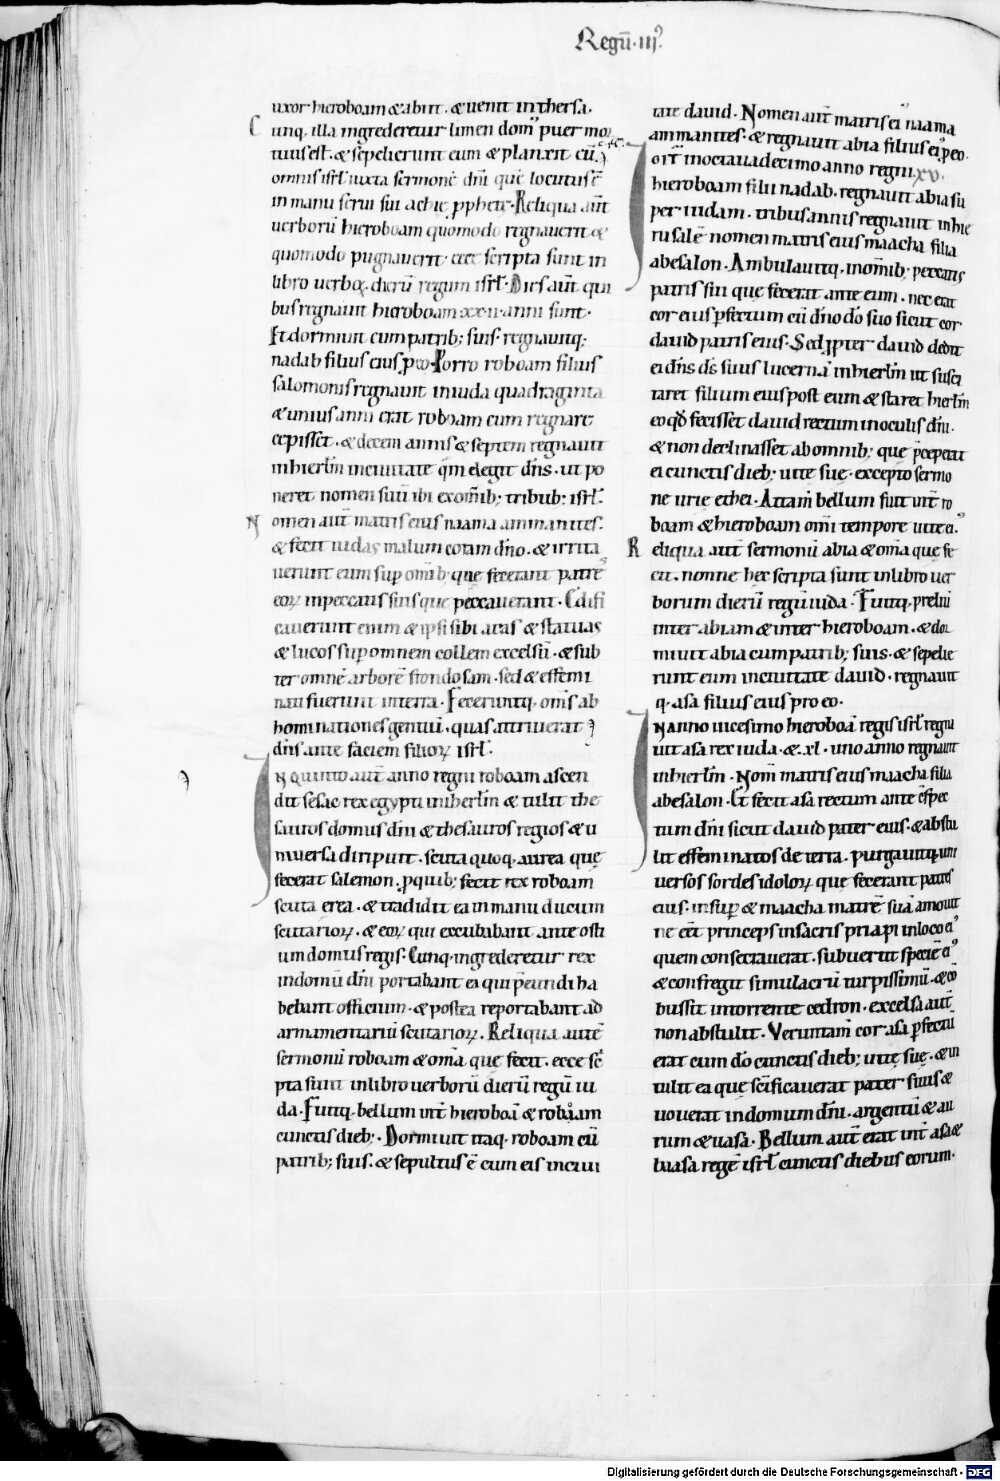 Regū·iijꝰ.
uxor hieroboam & abiit. & uenit in thersa.
Cunq; illa ingrederetur limen domꝰ puer mor
tuus est. & sepelierunt eum & planxit eū
omnis isrł iuxta sermonē dn̄i quē locutus ē
in manu serui sui achię ꝓphetę. Reliqua aūt
uerborū hieroboam quomodo regnauerit &
quomodo pugnauerit. ecce scripta sunt in
libro uerboꝝ dierū regum isrł. Dies aūt qui
bus regnauit hieroboam xx·ii· anni sunt.
Et dormiuit cum patrib; suis. regnauitq;
nadab filius eius p eo. Porro roboam filius
salomonis regnauit in iuda quadraginta
& unius anni erat roboam cum regnare
cepisset. & decem annis & septem regnauit
in hierłm in ciuitate qm̄ elegit dn̄s. ut po
neret nomen suū ibi ex om̄ib; tribub; isrł.
Nomen aūt matris eius naama ammanites.
& fecit iudas malum coram dn̄o. & irrita
uerunt eum sup om̄ib; que fecerant patre
eoꝝ in peccatis suis que peccauerant. Edifi
cauerunt enim & ipsi sibi aras & statuas
& lucos sup omnem collem excelsū. & sub
ter omnē arborē frondosam. sed & effemi
nati fuerunt in terra. Feceruntq; om̄s ab
hominationes gentiū. quas attriuerat
dn̄s ante faciem filioꝝ isrł.
IN quinto aūt anno regni roboam ascen
dit sesac rex egypti in hierłm & tulit the
sauros domus dn̄i & thesauros regios & u
niuersa diripuit. scuta quoq; aurea que
fecerat salemon. p quib; fecit rex roboam
scuta erea. & tradidit ea in manu ducum
scutarioꝝ. & eoꝝ qui excubabant ante osti
um domus regis. Cunq; ingrederetur rex
in domū dn̄i portabant ea qui p̄eundi ha
bebant officium. & postea reportabant ad
armamentariū scutarioꝝ. Reliqua autē
sermonū roboam & om̄a que fecit. ecce sc̄
pta sunt in libro uerborū dierū regū iu
da. Fuitq; bellum int̄ hieroboā & roboam
cunctis dieb;. Dormiuit itaq; roboam cū
patrib; suis. & sepultus ē cum eis in ciui
tate dauid. Nomen aūt matris eiꝰ naama
ammanites. & regnauit abia filius eiꝰ p eo.
Igit̄ in octauadecimo anno regni xv.
hieroboam filii nadab. regnauit abia su
per iudam. tribus annis regnauit in hie
rusalē nomen matris eius maacha filia
abesalon. Ambulauitq; in om̄ib; peccatis
patris sui que fecerat ante eum. nec erat
cor eius pfectum cū dn̄o dō suo sicut cor
dauid patris eius. Sed ꝓpter dauid dedit
ei dn̄s ds̄ suus lucernā in hierłm ut susci
taret filium eius post eum & staret hierłm
eo qđ fecisset dauid rectum in oculis dn̄i.
& non declinasset ab omnib; que p̄ceperat
ei cunctis dieb; uite sue. excepto sermo
ne urie ethei. Attam̄ bellum fuit int̄ ro
boam & hieroboam om̄i tempore uite eiꝰ
Reliqua aūt sermonū abia & om̄a que fe
cit. nonne hec scripta sunt in libro uer
borum dierū regū iuda. Fuitq; preliū
inter abiam & inter hieroboam. & dor
miuit abia cum patrib; suis. & sepelie
runt eum in ciuitate dauid. regnauit
q; asa filius eius pro eo.
IN anno uicesimo hieroboā regis isrł regna
uit asa rex iuda. & xl. uno anno regnauit
in hierłm. Nom̄ matris eius maacha filia
abesalon. Et fecit asa rectum ante c̄spec
tum dn̄i sicut dauid pater eius. & abstu
lit effeminatos de terra. purgauitq; uni
uersos sordes idoloꝝ que fecerant patres
eius. insup & maacha matrē suā amouit
ne eēt princeps in sacris priapi in loco eiꝰ
quem consecrauerat. subuertit speciē eiꝰ
& confregit simulacrū turpissimū. & cō
bussit in torrente cedron. excelsa aūt
non abstulit. Veruntam̄ cor asa pfectū
erat cum dō cunctis dieb; uite sue. & in
tulit ea que sc̄ificauerat pater suus &
uouerat in domum dn̄i. argentū & au
rum & uasa. Bellum aūt erat int̄ asa &
baasa regē isrł cunctis diebus eorum.
Digitalisierung gefördert durch die Deutsche Forschungsgemeinschaft - DFG